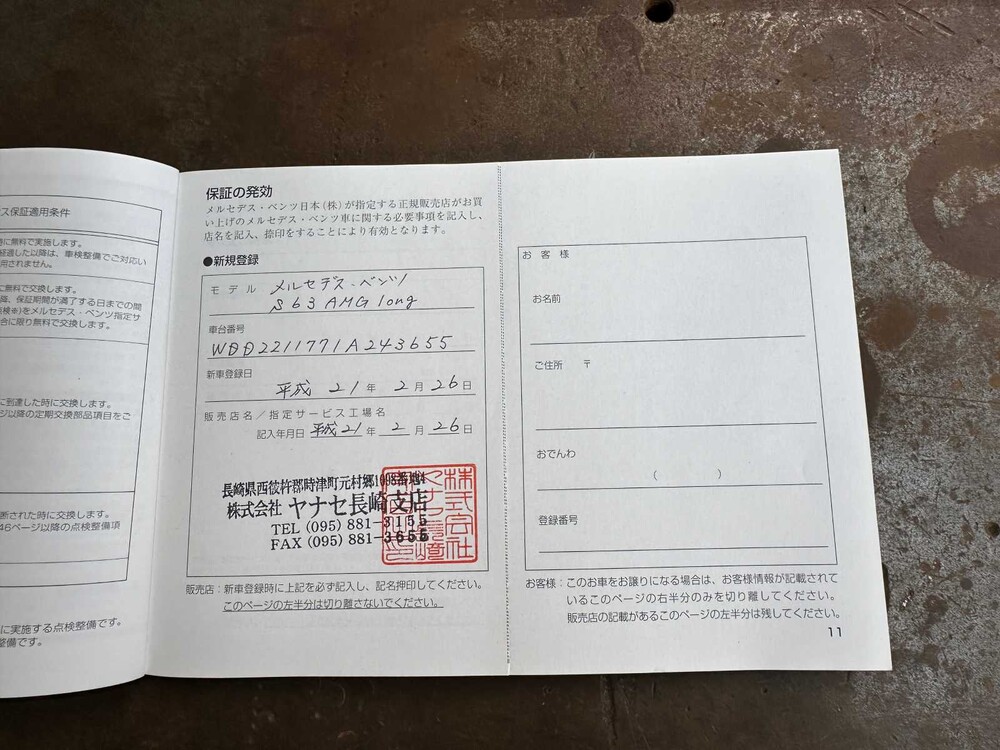 ス保証適用条件
時に無料で実施します。
経過した以降は、車検整備でご対応い
用されません。
に無料で交換します。
降、保証期間が満了する日までの間
検※)をメルセデス・ベンツ指定サ
合に限り無料で交換します。
に到達した時に交換します。
ジ以降の定期交換部品項目をご
断された時に交換します。
46ページ以降の点検整備項
に実施する点検整備です。
整備です。
保証の発効
メルセデス・ベンツ日本(株)が指定する正規販売店がお買
い上げのメルセデス・ベンツ車に関する必要事項を記入し、
店名を記入、捺印をすることにより有効となります。
●新規登録
モデル メルセデス・ベンツ
S63 AMG long
車台番号
WDD2211771A243655
新車登録日
平成 21年 2月 26日
販売店名/指定サービス工場名
記入年月日 平成21年 2月 26日
長崎県西彼杵郡時津町元村郷1098番地4
株式会社 ヤナセ長崎支店
TEL (095) 881-3155
FAX (095) 881-3655
販売店:新車登録時に上記を必ず記入し、記名押印してください。
このページの左半分は切り離さないでください。
お客様
お名前
ご住所 〒
おでんわ
( )
登録番号
お客様:このお車をお譲りになる場合は、お客様情報が記載されて
いるこのページの右半分のみを切り離してください。
販売店の記載があるこのページの左半分は残してください。
11